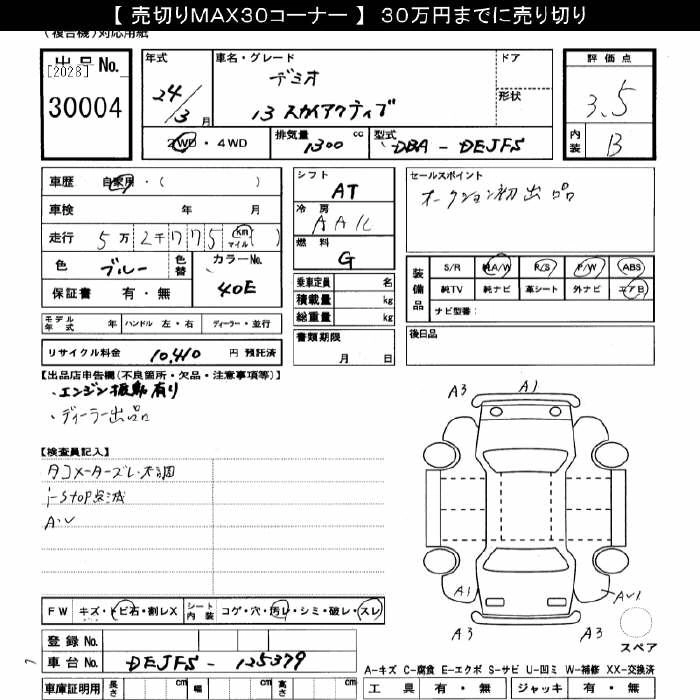 【 売切りMAX30コーナー 】 30万円までに売り切り
(複合機)対応用紙
出品No.
[2028]
30004
年式
24/3月
車名・グレード
デミオ
13 スカイアクティブ
ドア
形状
評価点
3.5
内装
B
2WD・4WD
排気量 1300 cc
型式 DBA - DEJFS
車歴 自家用・( )
車検 年 月
走行 5万2千775 km マイル ( )
色 ブルー
色替
カラーNo.
40E
保証書 有・無
モデル年式 年 ハンドル 左・右 ディーラー・並行
リサイクル料金 10,410 円 預託済
シフト
AT
冷房
AAC
燃料
G
乗車定員 名
積載量 kg
総重量 kg
書類期限
月 日
セールスポイント
オークション初出品
装備品
S/R 純A/W P/S P/W ABS
純TV 純ナビ 革シート 外ナビ エアB
ナビ型番:
後日品
【出品店申告欄(不良箇所・欠品・注意事項等)】
・エンジン振動有り
・ディーラー出品
【検査員記入】
タコメーターズレ・不調
i-stop点滅
A・U
FW キズ・トビ石・割レX シート内装 コゲ・穴・汚レ・シミ・破レ・スレ
登録No.
車台No. DEJFS - 125379
車庫証明用 長さ cm 幅 cm 高さ cm
A3 A1
A1 AU1
A3 A3
スペア
A-キズ C-腐食 E-エクボ S-サビ U-凹ミ W-補修 XX-交換済
工具 有・無 ジャッキ 有・無